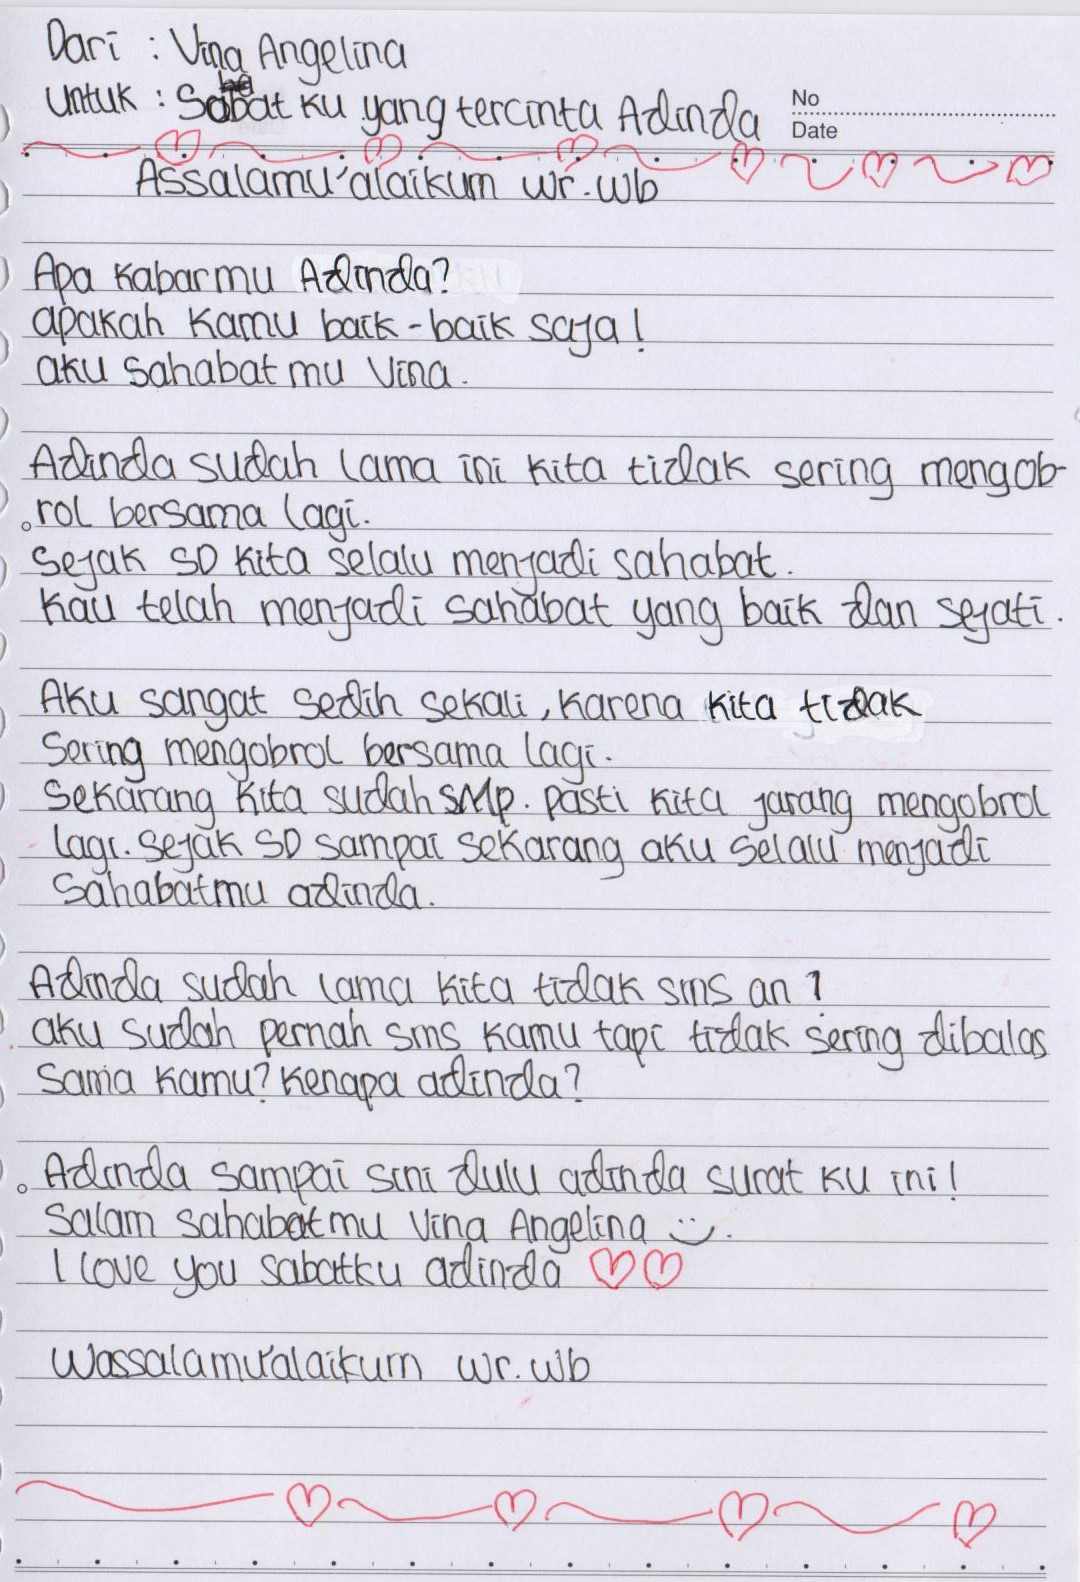 Dari : Vina Angelina
Untuk : Sahabat ku yang tercinta Adinda
No
Date
Assalamu'alaikum wr.wb
Apa kabarmu Adinda?
apakah kamu baik-baik saja!
aku Sahabat mu Vina.
Adinda sudah lama ini kita tidak sering mengob-
rol bersama lagi.
Sejak SD kita selalu menjadi sahabat.
kau telah menjadi sahabat yang baik dan sejati.
Aku sangat sedih sekali, karena kita tidak
Sering mengobrol bersama lagi.
Sekarang kita sudah SMP. pasti kita jarang mengobrol
lagi. Sejak SD sampai sekarang aku selalu menjadi
Sahabatmu adinda.
Adinda sudah lama kita tidak sms an ?
aku sudah pernah sms kamu tapi tidak sering dibalas
Sama kamu? kenapa adinda?
Adinda sampai sini dulu adinda surat ku ini!
Salam sahabatmu Vina Angelina :).
I love you sabatku adinda ♡♡
Wassalamu'alaikum wr.wb